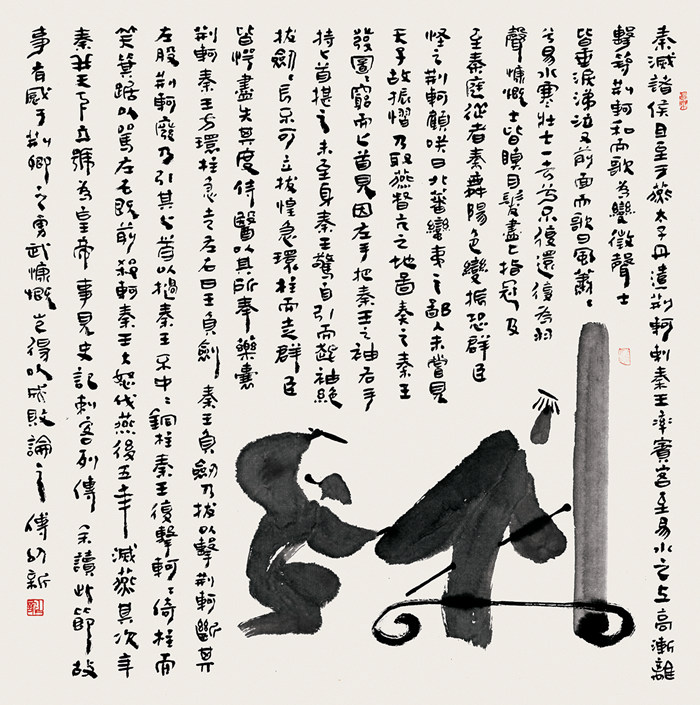 秦滅諸侯且至于燕太子丹遣荆軻刺秦王率賓客至易水之上高漸離
擊筑荆軻和而歌為變徵聲士
皆垂淚涕泣又前面而歌曰風蕭〻
兮易水寒壯士一去兮不復還復為羽
聲慷慨士皆瞋目髮盡上指冠及
至秦庭從者秦舞陽色變振恐群臣
怪之荆軻顧咲曰北蕃蠻夷之鄙人未嘗見
天子故振慴乃取燕督亢之地圖奏之秦王
發圖〻窮而匕首見因左手把秦王之袖右手
持匕首揕之未至身秦王驚自引而起袖絕
拔劍〻長不可立拔惶急環柱而走群臣
皆愕盡失其度侍醫以其所奉藥囊
荆軻秦王方環柱急走左右曰王負劍 秦王負劍乃拔以擊荆軻斷其
左股荆軻廢乃引其匕首以擿秦王不中〻銅柱秦王復擊軻〻倚柱而
笑箕踞以罵左右既前殺軻秦王大怒伐燕後五年滅燕其次年
秦并天下立號為皇帝事見史記刺客列傳 余讀此節故
事有感于荆卿之勇武慷慨豈得以成敗論之 傅幼新